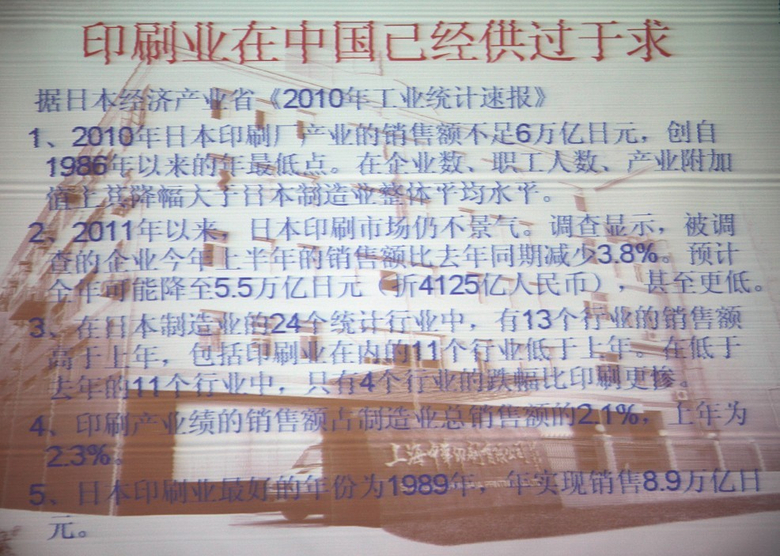 印刷业在中国已经供过于求
据日本经济产业省《2010年工业统计速报》
1、2010年日本印刷厂产业的销售额不足6万亿日元，创自
1986年以来的年最低点。在企业数、职工人数、产业附加
值上其降幅大于日本制造业整体平均水平。
2、2011年以来，日本印刷市场仍不景气。调查显示，被调
查的企业今年上半年的销售额比去年同期减少3.8%。预计
全年可能降至5.5万亿日元（折4125亿人民币），甚至更低。
3、在日本制造业的24个统计行业中，有13个行业的销售额
高于上年，包括印刷业在内的11个行业低于上年。在低于
去年的11个行业中，只有4个行业的跌幅比印刷更惨。
4、印刷产业绩的销售额占制造业总销售额的2.1%，上年为
2.3%。
5、日本印刷业最好的年份为1989年，年实现销售8.9万亿日
元。
上海中华印刷有限公司